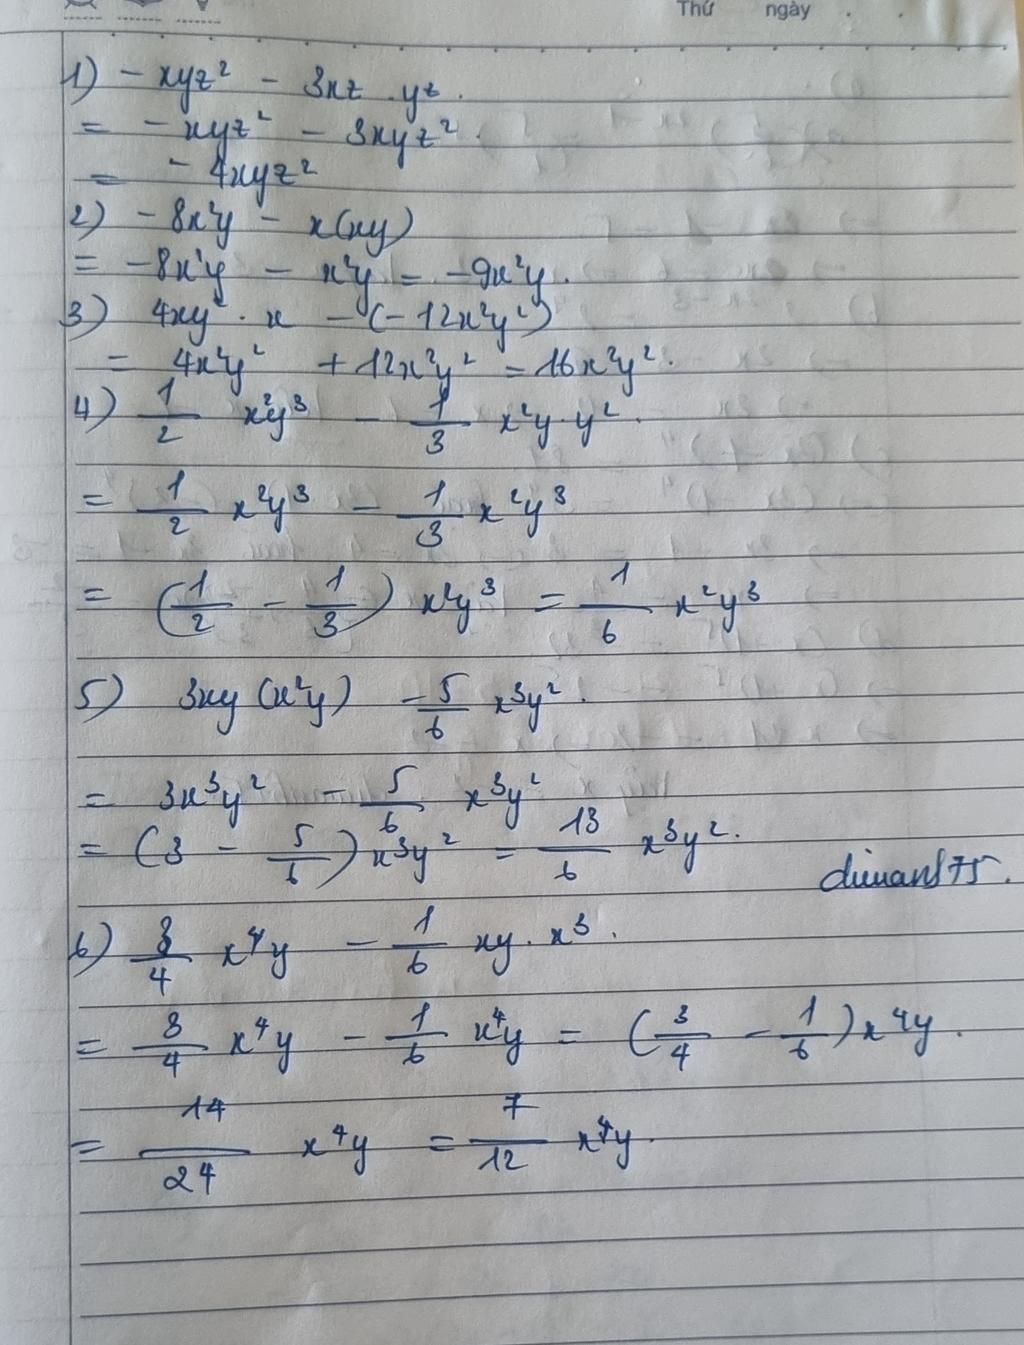 Thứ ngày
1) - xyz² - 3xz . yz .
= - xyz² - 3xyz² .
= - 4xyz²
2) - 8x²y - x(xy)
= - 8x²y - x²y = - 9x²y .
3) 4xy² . x - (- 12x²y²)
= 4x²y² + 12x²y² = 16x²y² .
4) 1/2 x²y³ - 1/3 x²y . y² .
= 1/2 x²y³ - 1/3 x²y³
= (1/2 - 1/3) x²y³ = 1/6 x²y³
5) 3xy (x²y) - 5/6 x³y² .
= 3x³y² - 5/6 x³y²
= (3 - 5/6) x³y² = 13/6 x³y² .
6) 3/4 x⁴y - 1/6 xy . x³ .
= 3/4 x⁴y - 1/6 x⁴y = (3/4 - 1/6) x⁴y .
= 14/24 x⁴y = 7/12 x⁴y .